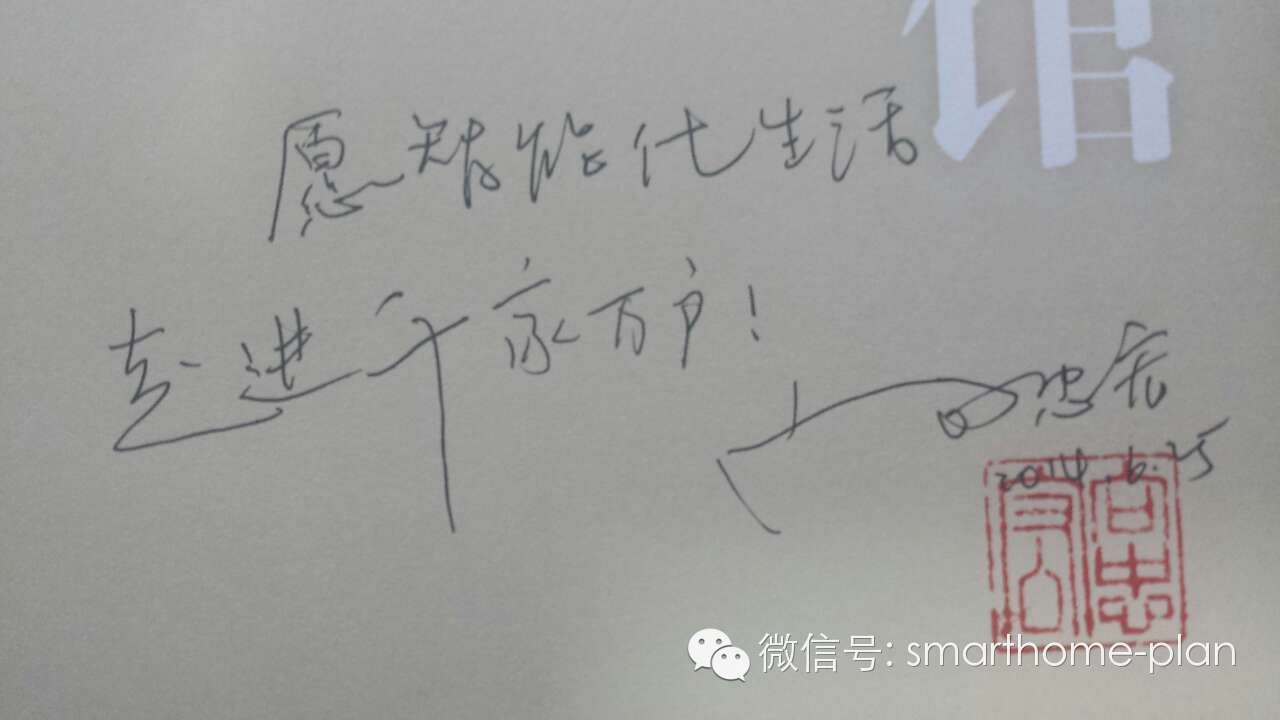 馆
愿智能化生活
走进千家万户!
2014.6.25
微信号: smarthome-plan